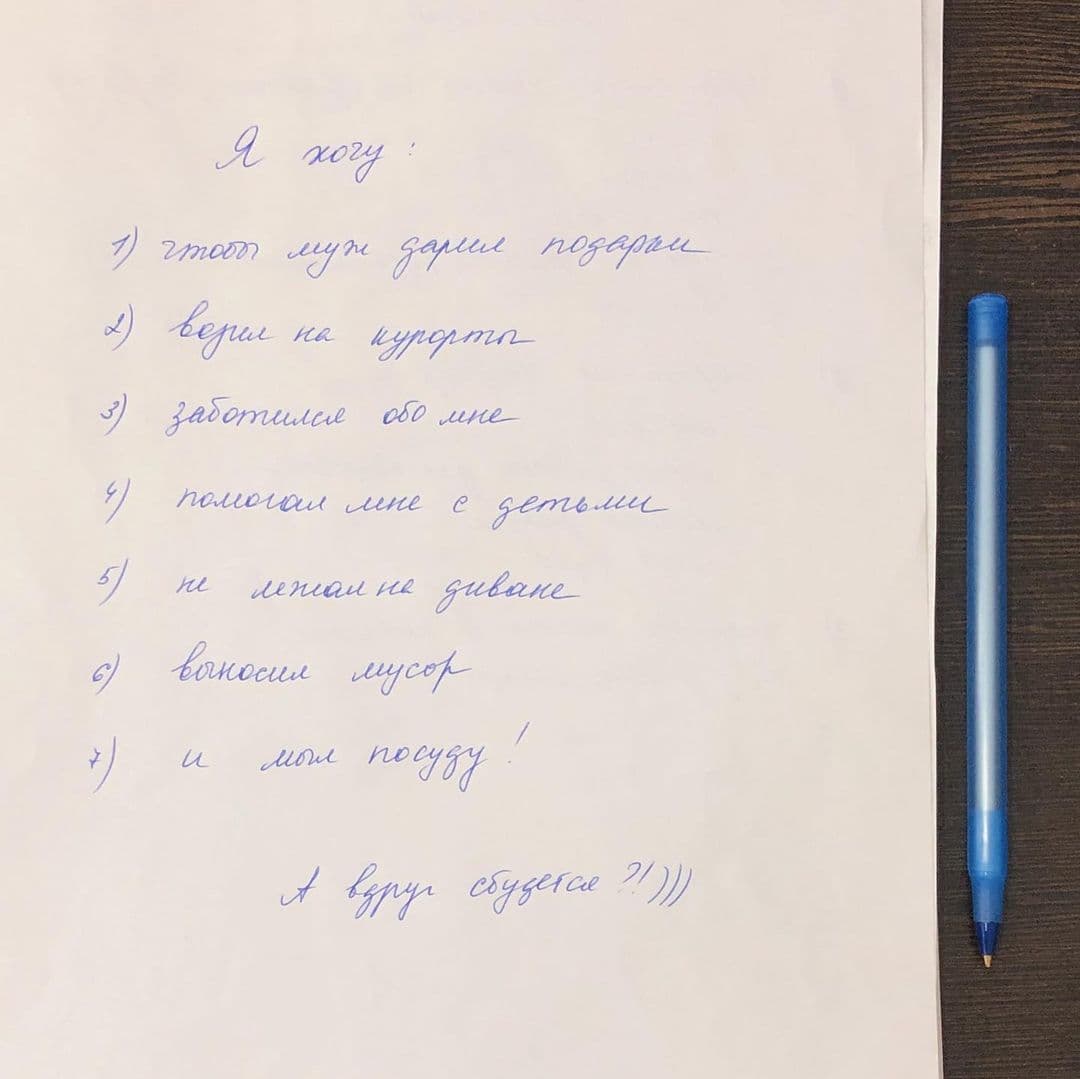 Я хочу:
1) чтобы муж дарил подарки
2) возил на курорты
3) заботился обо мне
4) помогал мне с детьми
5) не лежал на диване
6) выносил мусор
7) и мыл посуду!
А вдруг сбудется?!)))